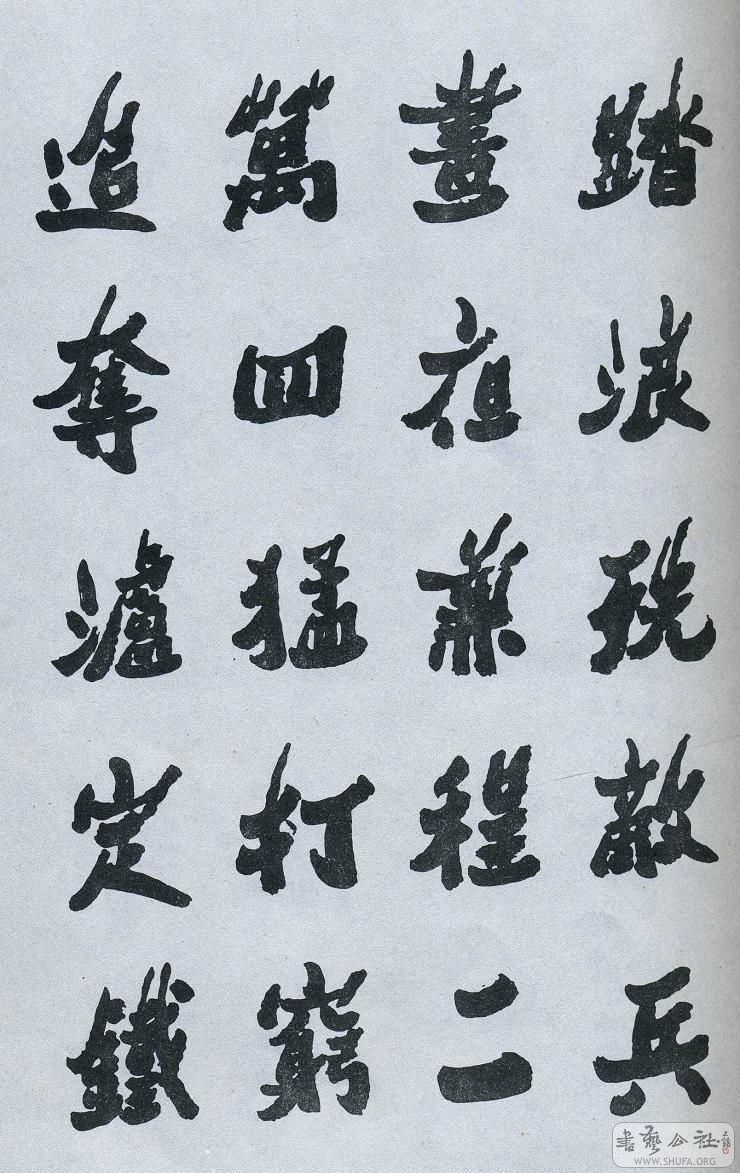 踏浪殲敵兵
晝夜兼程二
萬四猛打窮
追奪瀘定鐵
書藝公社
WWW.SHUFA.ORG